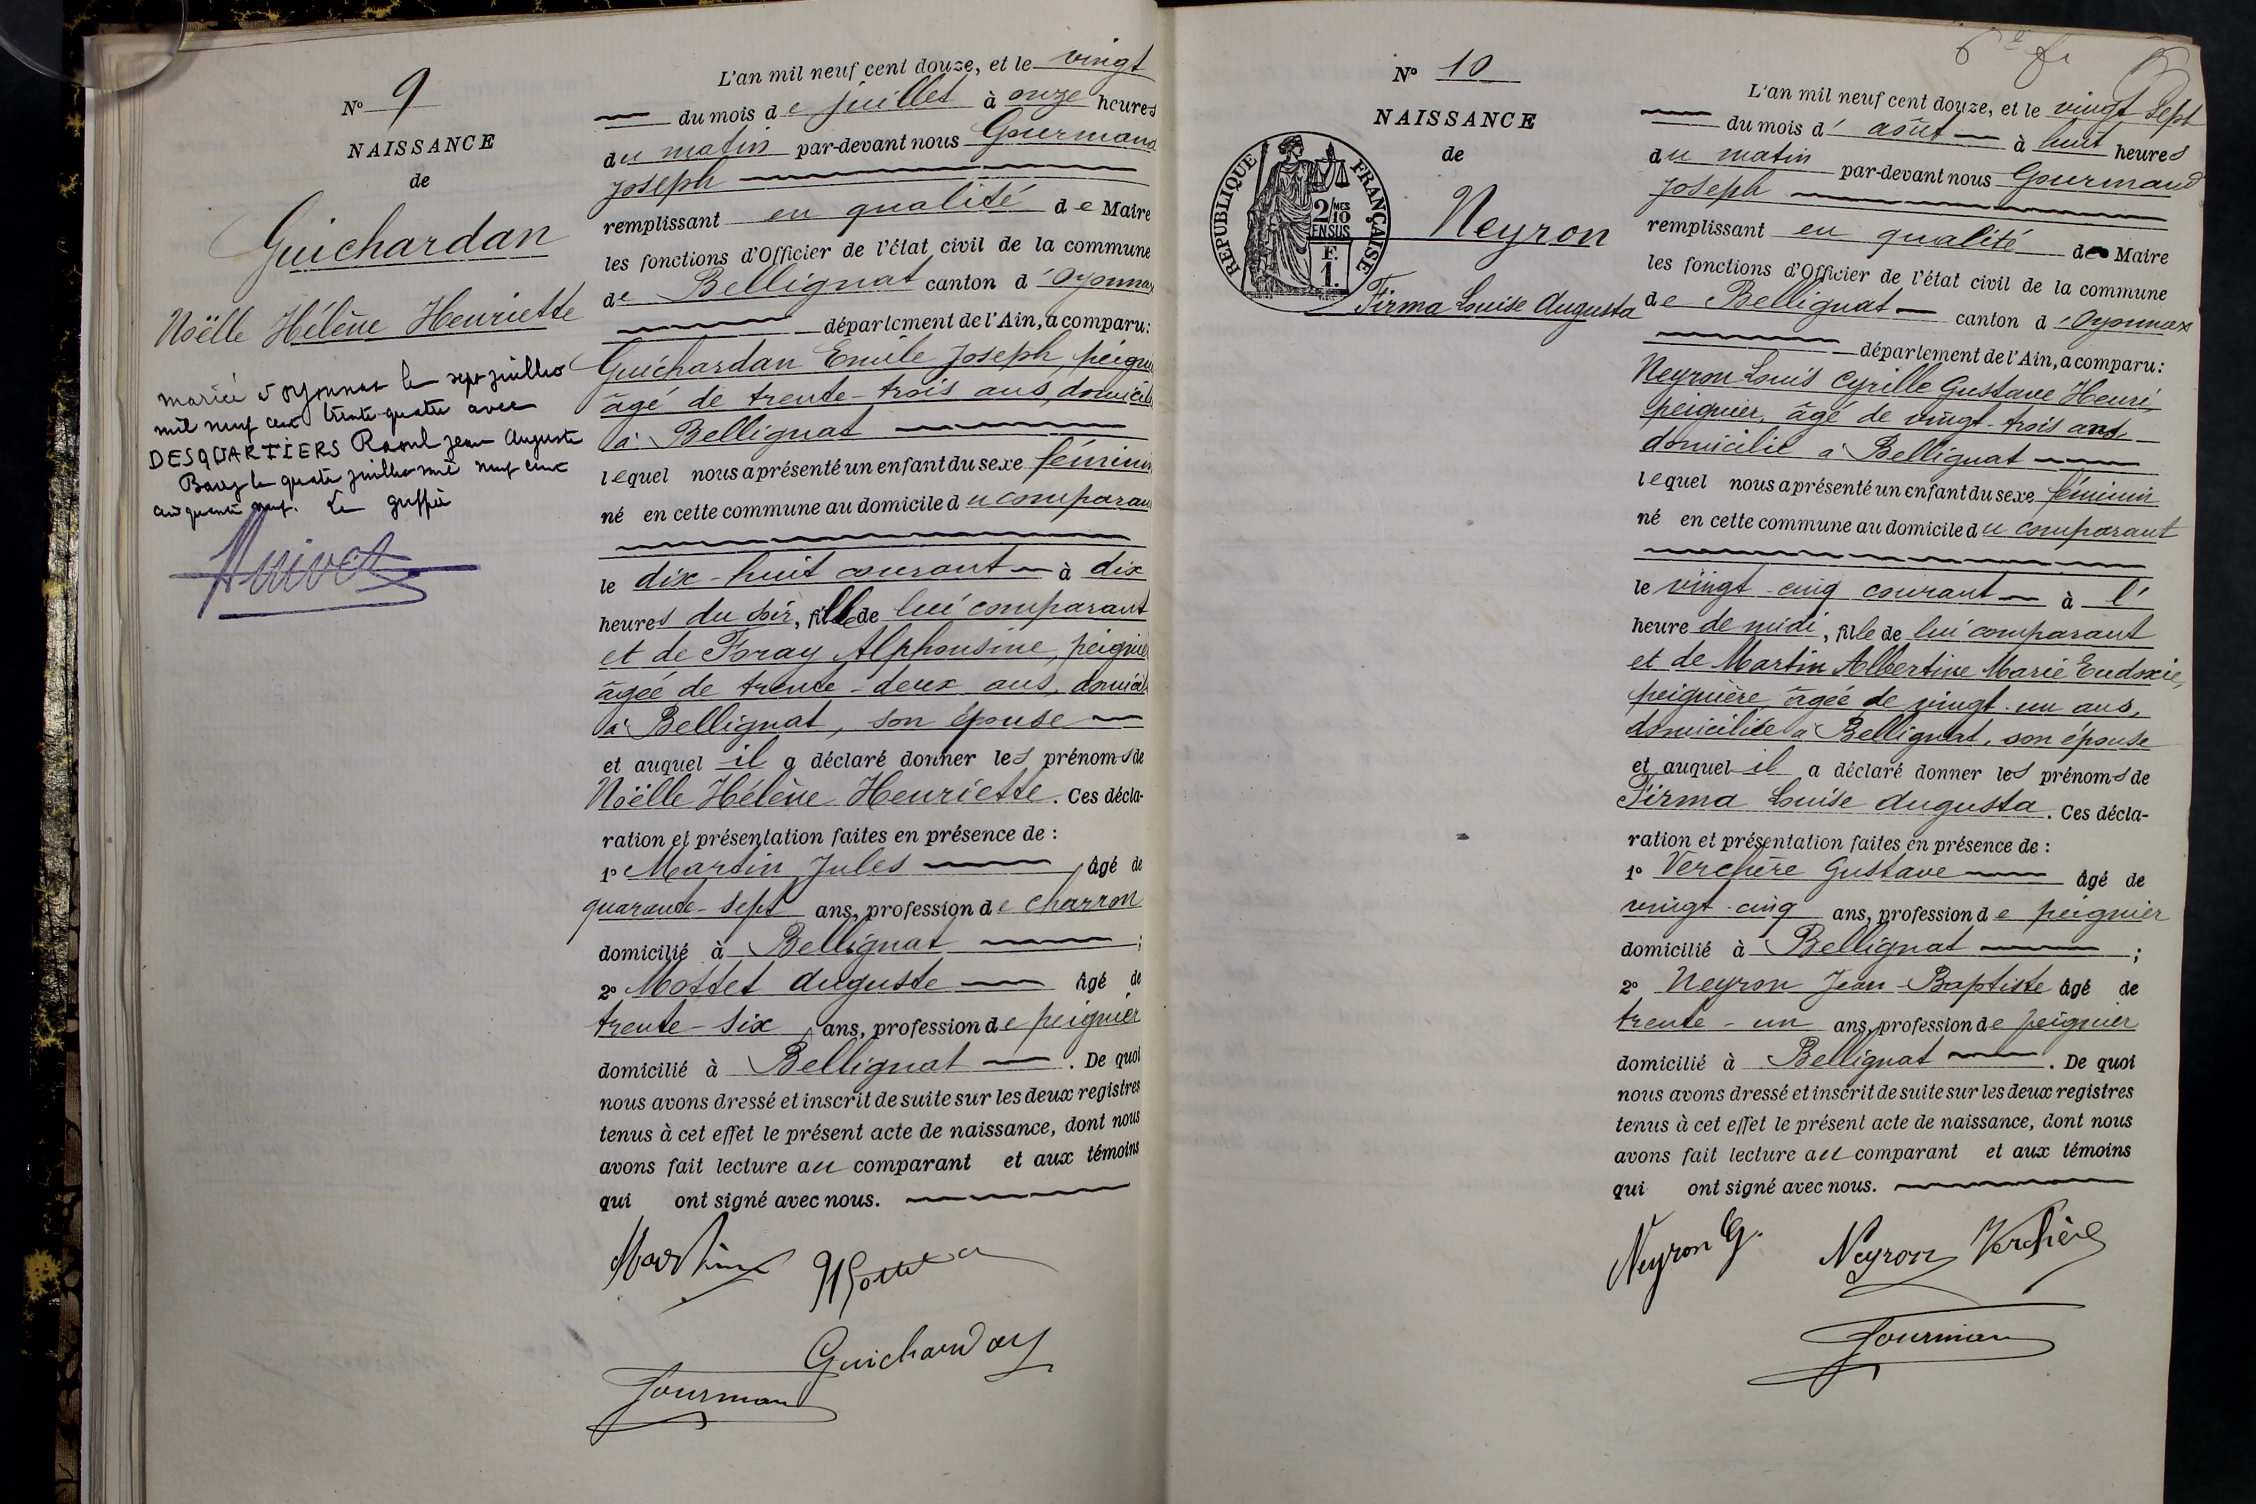 N° 9
NAISSANCE
de
Guichardan
Noëlle Hélène Henriette
mariée à Oyonnax le sept juillet
mil neuf cent trente-quatre avec
DESQUARTIERS Raoul Jean Auguste
Bourg le quatre juillet mil neuf cent
cinquante neuf. Le greffier
L'an mil neuf cent douze, et le vingt
du mois de juillet à onze heures
du matin par-devant nous Gourmand
Joseph
remplissant en qualité de Maire
les fonctions d'Officier de l'état civil de la commune
de Bellignat canton d'Oyonnax
département de l'Ain, a comparu:
Guichardan Emile Joseph, peignier
âgé de trente-trois ans, domicilié
à Bellignat
lequel nous a présenté un enfant du sexe féminin
né en cette commune au domicile du comparant
le dix-huit courant à dix
heures du soir, fille de lui comparant
et de Foray Alphonsine, peignière
âgée de trente-deux ans, domiciliée
à Bellignat, son épouse
et auquel il a déclaré donner les prénoms de
Noëlle Hélène Henriette. Ces décla-
ration et présentation faites en présence de :
1° Martin Jules âgé de
quarante-sept ans, profession de charron
domicilié à Bellignat ;
2° Mottet Auguste âgé de
trente-six ans, profession de peignier
domicilié à Bellignat . De quoi
nous avons dressé et inscrit de suite sur les deux registres
tenus à cet effet le présent acte de naissance, dont nous
avons fait lecture au comparant et aux témoins
qui ont signé avec nous.
Martin Mottet
Guichardan
Gourmand
N° 10
NAISSANCE
de
RÉPUBLIQUE FRANÇAISE
2/MES
10
EN SUS
F.
1.
Neyron
Firma Louise Augusta
L'an mil neuf cent douze, et le vingt sept
du mois d'août à huit heures
du matin par-devant nous Gourmand
Joseph
remplissant en qualité de Maire
les fonctions d'Officier de l'état civil de la commune
de Bellignat canton d'Oyonnax
département de l'Ain, a comparu:
Neyron Louis Cyrille Gustave Henri,
peignier, âgé de vingt-trois ans,
domicilié à Bellignat
lequel nous a présenté un enfant du sexe féminin
né en cette commune au domicile du comparant
le vingt-cinq courant à l'
heure de midi, fille de lui comparant
et de Martin Albertine Marie Eudoxie,
peignière, âgée de vingt-un ans,
domiciliée à Bellignat, son épouse
et auquel il a déclaré donner les prénoms de
Firma Louise Augusta. Ces décla-
ration et présentation faites en présence de :
1° Verchère Gustave âgé de
vingt-cinq ans, profession de peignier
domicilié à Bellignat ;
2° Neyron Jean-Baptiste âgé de
trente-un ans, profession de peignier
domicilié à Bellignat . De quoi
nous avons dressé et inscrit de suite sur les deux registres
tenus à cet effet le présent acte de naissance, dont nous
avons fait lecture au comparant et aux témoins
qui ont signé avec nous.
Neyron G. Neyron Verchère
Gourmand